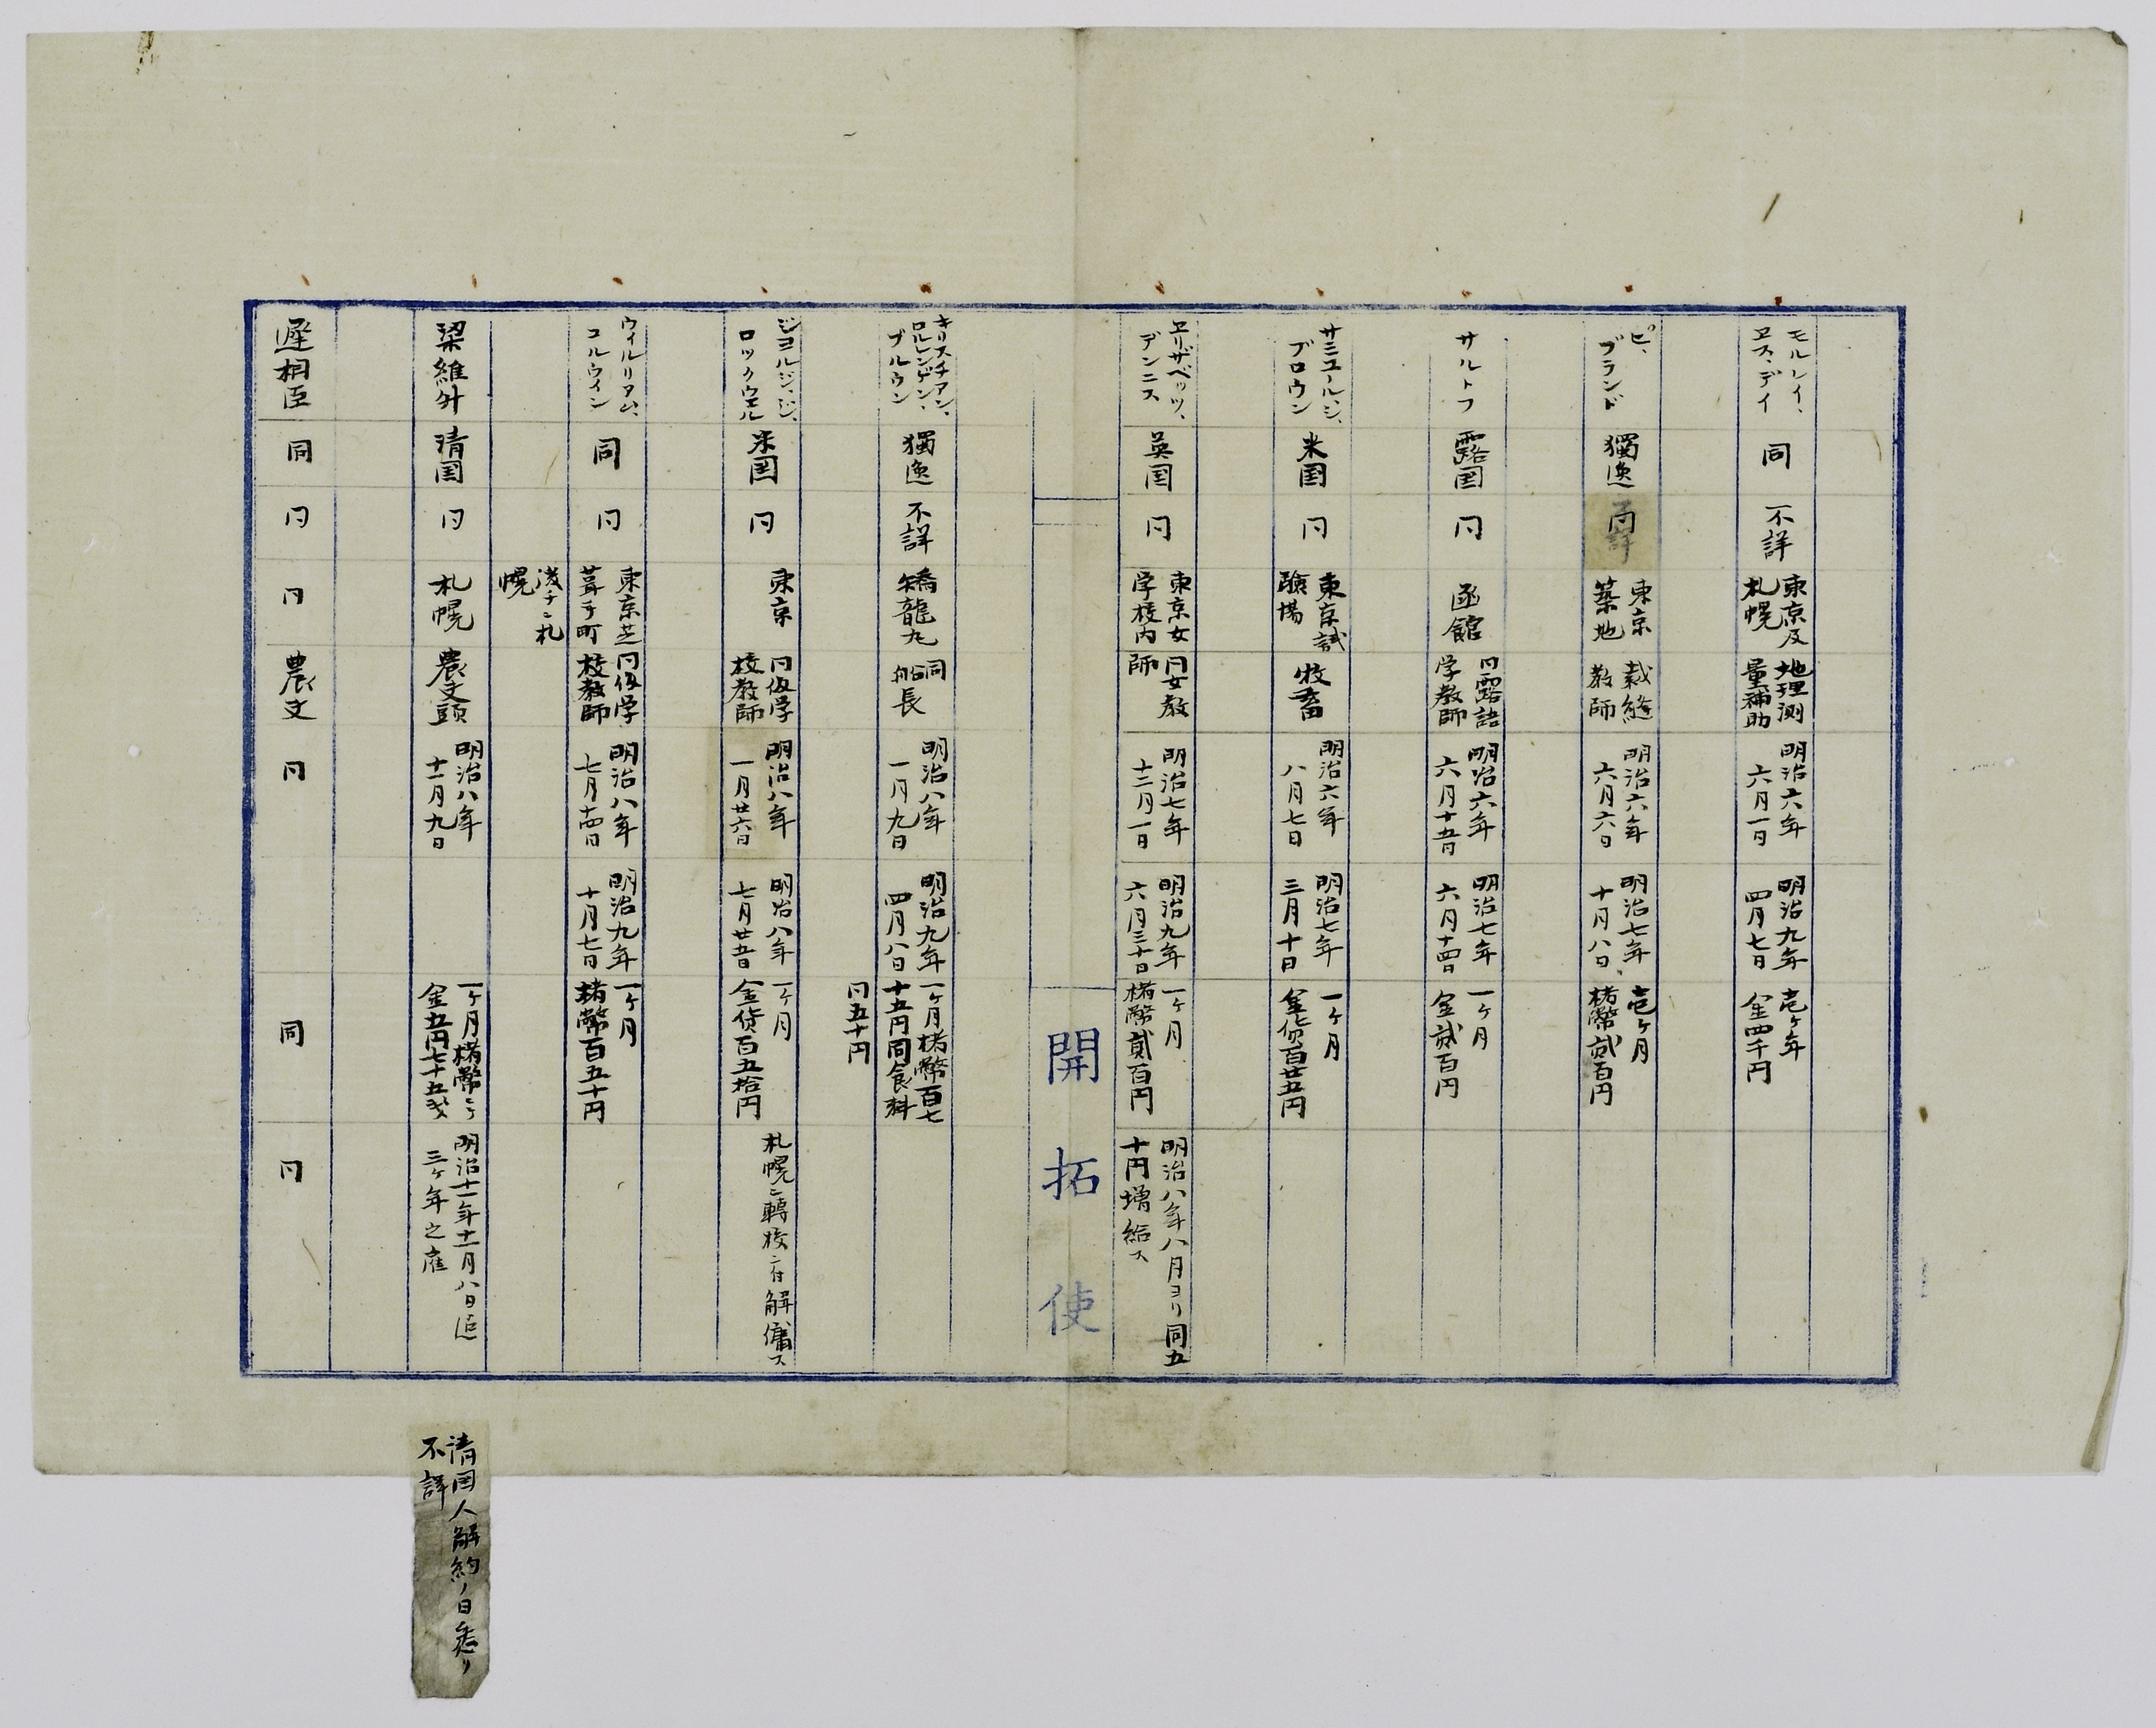 モルレイ、
ヱス、デイ
同
不詳
東京及
札幌
地理測
量補助
明治六年
六月一日
明治九年
四月七日
壱ヶ年
金四千円
ピ、
ブランド
獨逸
同
東京
築地
裁縫
教師
明治六年
六月六日
明治七年
十月八日
壱ヶ月
楮幣貳百円
サルトフ
露国
同
函館
同露語
学教師
明治六年
六月十五日
明治七年
六月十四日
一ヶ月
金貳百円
サミユールジ、
ブロウン
米国
同
東京試
験場
牧畜
明治六年
八月七日
明治七年
三月十日
一ヶ月
金貨百廿五円
ヱリザベッツ、
デンニス
英国
同
東京女
学校内
同女教
師
明治七年
十二月一日
明治九年
六月三十日
一ヶ月
楮幣貳百円
明治八年八月ヨリ同五
十円増給ス
開拓使
キリスチアン、
ロルレンゲン、
ブルウン
獨逸
不詳
矯龍丸
同
船長
明治八年
一月九日
明治九年
四月八日
一ヶ月楮幣百七
十五円同食料
同五十円
ジヨルジ、ジ、
ロックウエル
米国
同
東京
同仮学
校教師
明治八年
一月廿六日
明治八年
七月廿五日
一ヶ月
金貨百五拾円
札幌ニ轉校ニ付解傭ス
ウィルリアム、
コルウイン
同
同
東京芝
葺手町
後チニ札
幌
同仮学
校教師
明治八年
七月十四日
明治九年
十月七日
一ヶ月
楮幣百五十円
梁維升
清国
同
札幌
農夫頭
明治八年
十一月九日
一ヶ月楮幣ニテ
金五円七十五戋
明治十一年十一月八日迄
三ヶ年之雇
遲相臣
同
同
同
農夫
同
同
同
清国人解約ノ日悉リ
不詳